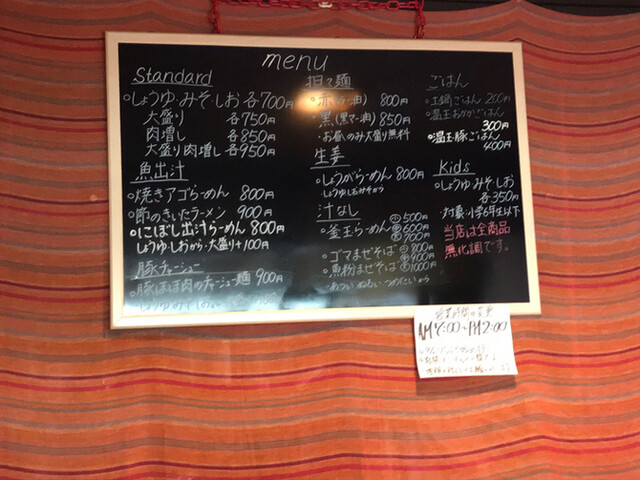 menu
Standard
・しょうゆ・みそ・しお 各700円
大盛り 各750円
肉増し 各850円
大盛り肉増し 各950円
魚出汁
・焼きアゴらーめん 800円
・節のきいたラーメン 900円
・にぼし出汁らーめん 800円
しょうゆ・しおから・大盛り+100円
豚チャーシュー
・豚ほほ肉のチャーシュー麺 900円
しょうゆ・みそ
担て麺
・赤(ラー油) 800円
・黒(黒マー油) 850円
・お昼のみ大盛り無料
生姜
・しょうがらーめん 800円
しょうゆしおみそから
汁なし
・釜玉らーめん 小500円
中600円
大700円
・ゴマまぜそば 小800円
・魚粉まぜそば 中900円
大1000円
あつい ぬるい つめたいから
ごはん
・土鍋ごはん 200円
・温玉おかかごはん
300円
・温玉豚ごはん
400円
Kids
・しょうゆ・みそ・しお
各350円
・対象:小学6年生以下
当店は全商品
無化調です。
営業時間の変更
AM7:00~PM2:00